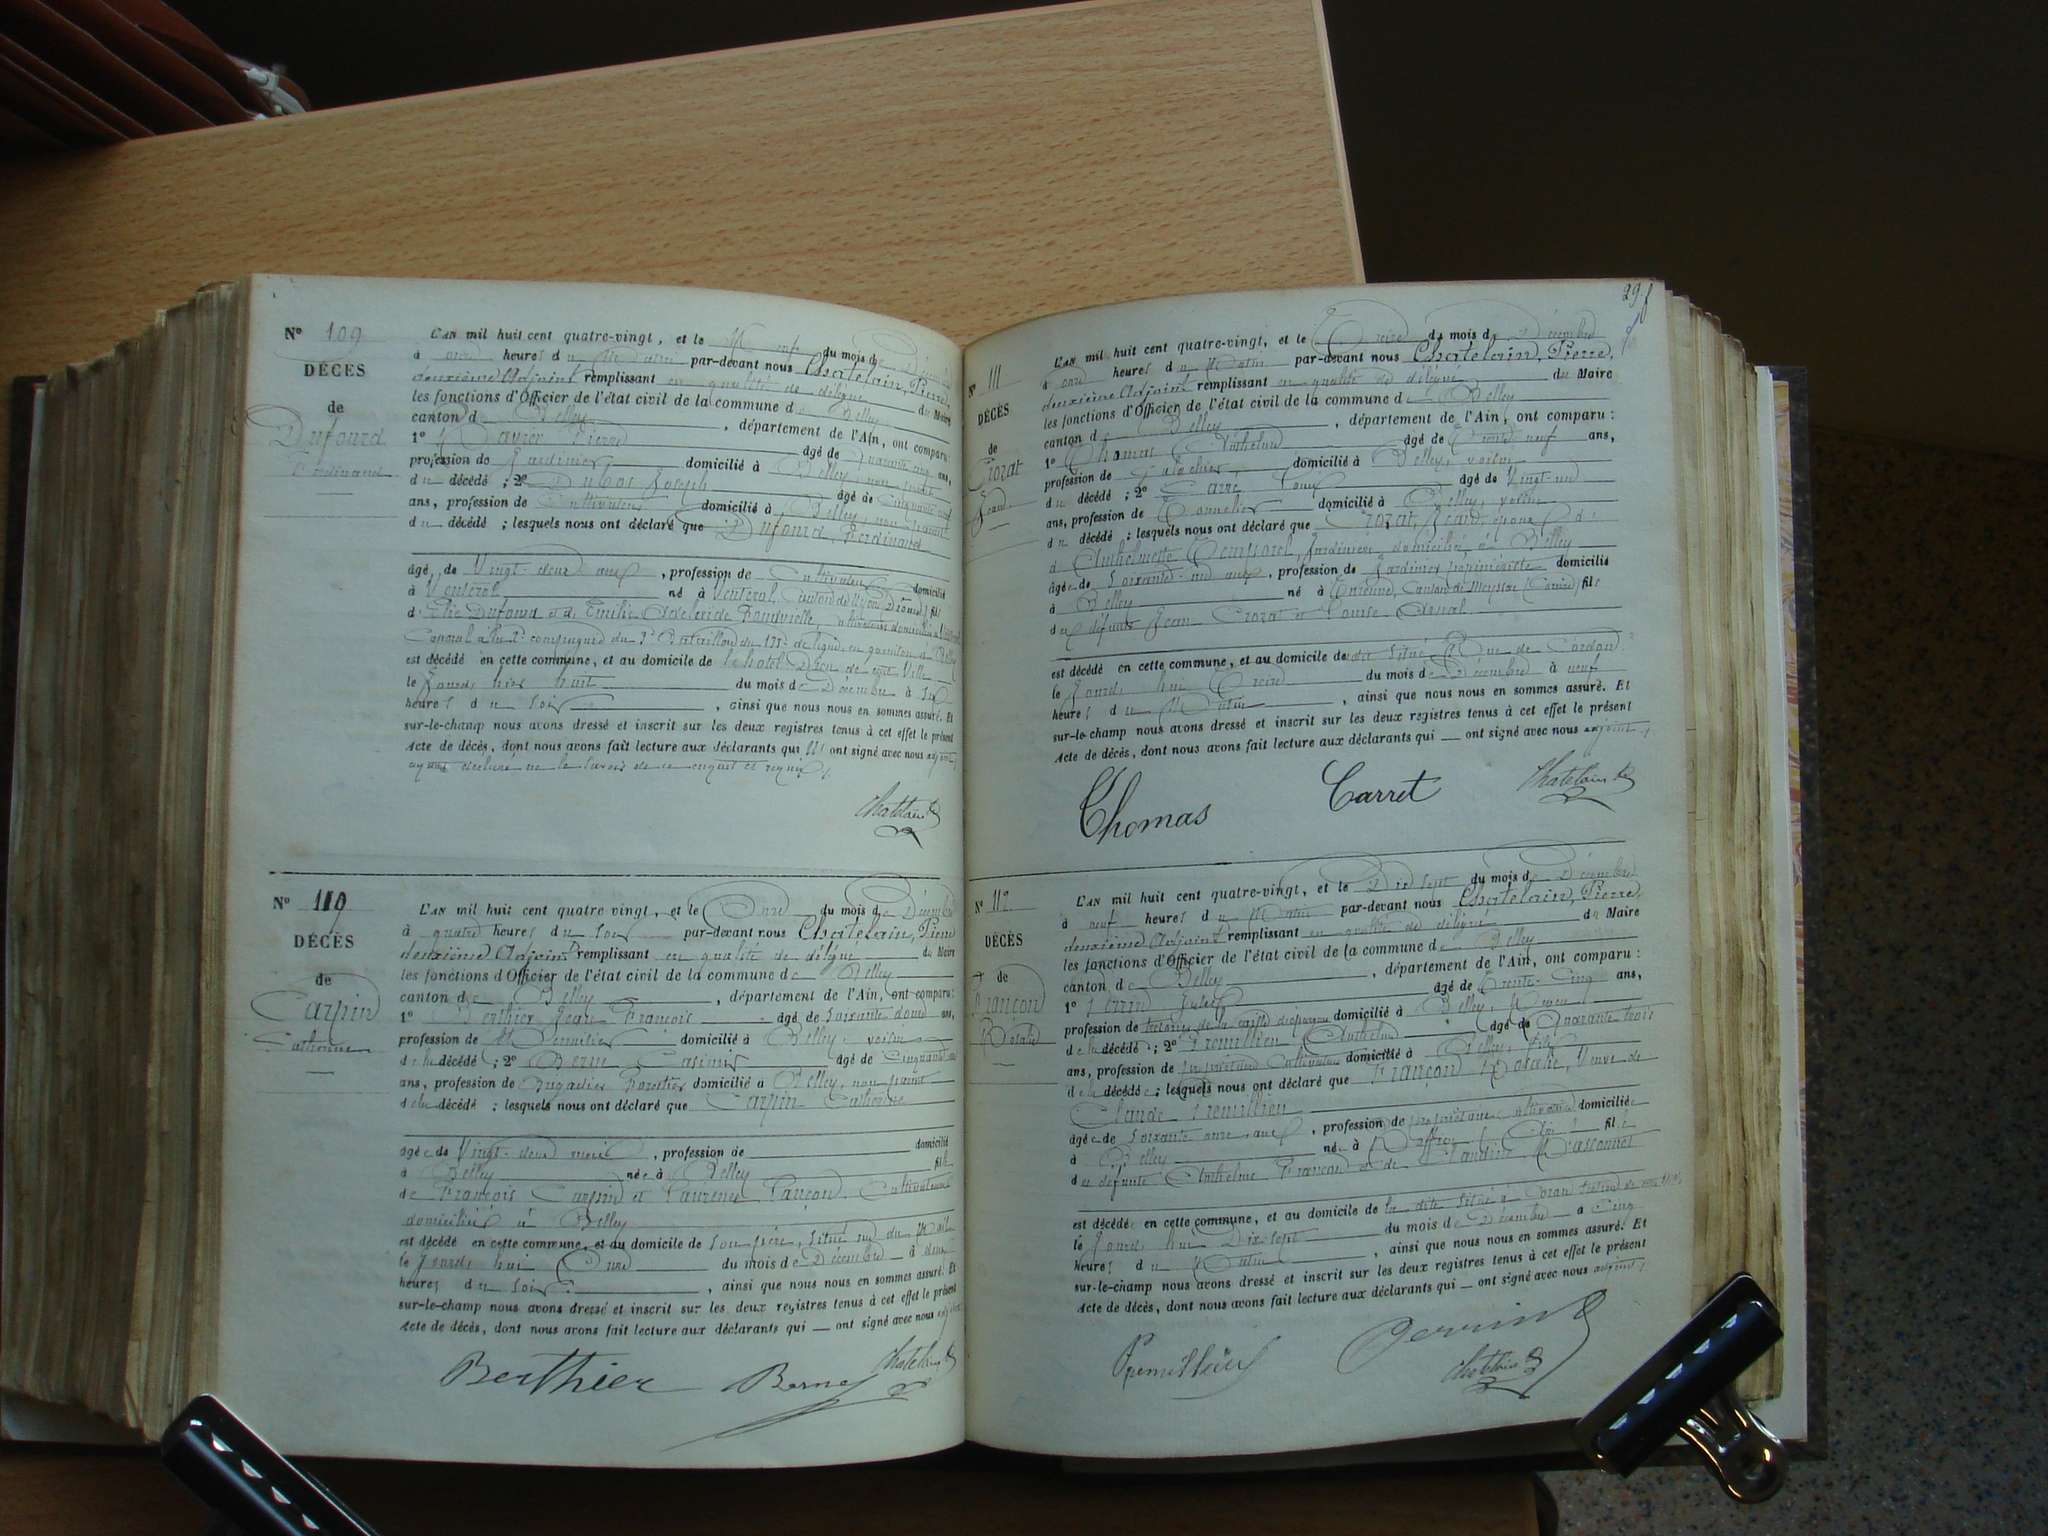 N° 109
DÉCÈS
de
Dufourd
Ferdinand
L'AN mil huit cent quatre-vingt, et le Neuf du mois de Décembre
à onze heures du Matin par-devant nous Chatelain, Pierre,
deuxième Adjoint remplissant en qualité de délégué du Maire
les fonctions d'Officier de l'état civil de la commune de Belley
canton de Belley, département de l'Ain, ont comparu:
1° Pierre âgé de quarante cinq ans,
profession de Jardinier domicilié à Belley, non parent
du décédé; 2° Dubos Joseph âgé de Cinquante
ans, profession de Cultivateur domicilié à Belley, non parent
du décédé; lesquels nous ont déclaré que Dufourd, Ferdinand
âgé de Vingt-deux ans, profession de Cultivateur domicilié
à Venterol né à Venterol, Canton de Nyons (Drôme) fils
d'Elie Dufourd et d'Emilie Adelaïde cultivateurs domiciliés à
Caporal à la 2e compagnie du 3e Bataillon du de ligne en garnison à Belley
est décédé en cette commune, et au domicile de l'hotel Dieu de cette Ville
le Jourd'hier huit du mois de Décembre à six
heures du soir, ainsi que nous nous en sommes assuré. Et
sur-le-champ nous avons dressé et inscrit sur les deux registres tenus à cet effet le présent
Acte de décès, dont nous avons fait lecture aux déclarants qui n'ont signé avec nous adjoint,
ayant déclaré ne le savoir de ce enquis et requis.
Chatelain P
N° 110
DÉCÈS
de
Carpin
Catherine
L'AN mil huit cent quatre vingt, et le Onze du mois de Décembre
à quatre heures du soir par-devant nous Chatelain, Pierre
deuxième Adjoint remplissant en qualité de délégué du Maire
les fonctions d'Officier de l'état civil de la commune de Belley
canton de Belley, département de l'Ain, ont comparu:
1° Berthier Jean François âgé de soixante douze ans,
profession de Menuisier domicilié à Belley, voisin
de la décédé; 2° Berne Casimir âgé de Cinquante
ans, profession de Brigadier Forestier domicilié à Belley, non parent
de la décédé; lesquels nous ont déclaré que Carpin Catherine
âgée de Vingt-deux mois, profession de domicilié
à Belley née à Belley fille
de François Carpin et Laurence Cultivateurs
domiciliés à Belley
est décédé en cette commune, et au domicile de son père, situé rue du Mail
le Jourd'hui Onze du mois de Décembre à deux
heures du soir, ainsi que nous nous en sommes assuré. Et
sur-le-champ nous avons dressé et inscrit sur les deux registres tenus à cet effet le présent
Acte de décès, dont nous avons fait lecture aux déclarants qui — ont signé avec nous adjoint
Berthier Berne Chatelain P
29
N° 111
DÉCÈS
de
Crozat
Jean
L'AN mil huit cent quatre-vingt, et le Treize du mois de Décembre
à onze heures du Matin par-devant nous Chatelain, Pierre,
deuxième Adjoint remplissant en qualité de délégué du Maire
les fonctions d'Officier de l'état civil de la commune de Belley
canton de Belley, département de l'Ain, ont comparu:
1° Thomas Anthelme âgé de Trente neuf ans,
profession de Galochier domicilié à Belley, voisin
du décédé; 2° Carret Louis âgé de Vingt-un
ans, profession de Tonnelier domicilié à Belley, voisin
du décédé; lesquels nous ont déclaré que Crozat, Jean, époux
d'Anthelmette Jardinière domiciliée à Belley
âgé de Soixante-un ans, profession de Jardinier pépiniériste domicilié
à Belley né à Canton de Meyssac (Corrèze) fils
des défunts Jean Crozat et Louise
est décédé en cette commune, et au domicile de situé Rue de Cordon
le Jourd'hui Treize du mois de Décembre à neuf
heures du Matin, ainsi que nous nous en sommes assuré. Et
sur-le-champ nous avons dressé et inscrit sur les deux registres tenus à cet effet le présent
Acte de décès, dont nous avons fait lecture aux déclarants qui — ont signé avec nous adjoint
Thomas Carret Chatelain P
N° 112
DÉCÈS
de
Françon
Rosalie
L'AN mil huit cent quatre-vingt, et le Dix sept du mois de Décembre
à neuf heures du Matin par-devant nous Chatelain, Pierre,
deuxième Adjoint remplissant en qualité de délégué du Maire
les fonctions d'Officier de l'état civil de la commune de Belley
canton de Belley, département de l'Ain, ont comparu:
1° Perrin Jules âgé de trente-cinq ans,
profession de de la caisse d'épargne domicilié à Belley,
de la décédé; 2° Premillieu Anthelme âgé de Quarante trois
ans, profession de propriétaire Cultivateur domicilié à Belley, fils
de la décédée; lesquels nous ont déclaré que Françon Rosalie, Veuve de
Claude Premillieu
âgée de soixante onze ans, profession de propriétaire cultivatrice domiciliée
à Belley née à fille
des défunts Anthelme Françon et de Claudine
est décédée en cette commune, et au domicile de la dite situé à
le Jourd'hui Dix-sept du mois de Décembre à Cinq
heures du Matin, ainsi que nous nous en sommes assuré. Et
sur-le-champ nous avons dressé et inscrit sur les deux registres tenus à cet effet le présent
Acte de décès, dont nous avons fait lecture aux déclarants qui — ont signé avec nous adjoint
Premillieu Perrin Chatelain P